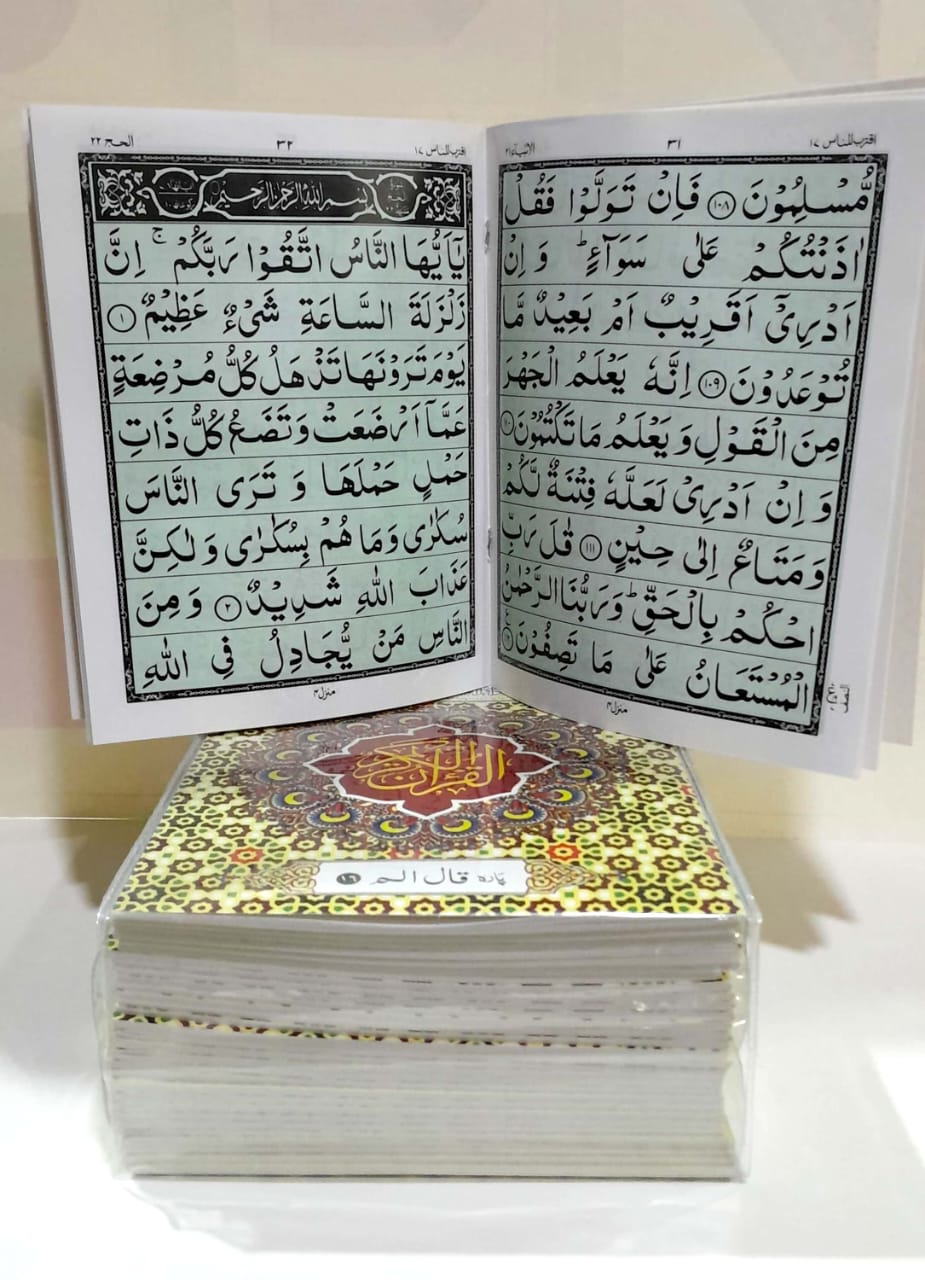 اقترب للناس ١٧ ٣١ الانبیاء ٢١
مُّسْلِمُوْنَ ۝١٠٨ فَاِنْ تَوَلَّوْا فَقُلْ
اٰذَنْتُكُمْ عَلٰى سَوَآءٍ ؕ وَ اِنْ
اَدْرِیْۤ اَقَرِیْبٌ اَمْ بَعِیْدٌ مَّا
تُوْعَدُوْنَ ۝١٠٩ اِنَّهٗ یَعْلَمُ الْجَهْرَ
مِنَ الْقَوْلِ وَ یَعْلَمُ مَا تَكْتُمُوْنَ ۝١١٠
وَ اِنْ اَدْرِیْ لَعَلَّهٗ فِتْنَةٌ لَّكُمْ
وَ مَتَاعٌ اِلٰى حِیْنٍ ۝١١١ قٰلَ رَبِّ
احْكُمْ بِالْحَقِّ ؕ وَ رَبُّنَا الرَّحْمٰنُ
الْمُسْتَعَانُ عَلٰى مَا تَصِفُوْنَ
النصف
منزل ٤
اقترب للناس ١٧ ٣٢ الحج ٢٢
بسم الله الرحمن الرحیم
یٰۤاَیُّهَا النَّاسُ اتَّقُوْا رَبَّكُمْ ۚ اِنَّ
زَلْزَلَةَ السَّاعَةِ شَیْءٌ عَظِیْمٌ ۝١
یَوْمَ تَرَوْنَهَا تَذْهَلُ كُلُّ مُرْضِعَةٍ
عَمَّاۤ اَرْضَعَتْ وَ تَضَعُ كُلُّ ذَاتِ
حَمْلٍ حَمْلَهَا وَ تَرَى النَّاسَ
سُكٰرٰى وَ مَا هُمْ بِسُكٰرٰى وَ لٰكِنَّ
عَذَابَ اللّٰهِ شَدِیْدٌ ۝٢ وَ مِنَ
النَّاسِ مَنْ یُّجَادِلُ فِی اللّٰهِ
منزل ٤
القرآن الكريم
پاره قال الم ١٦